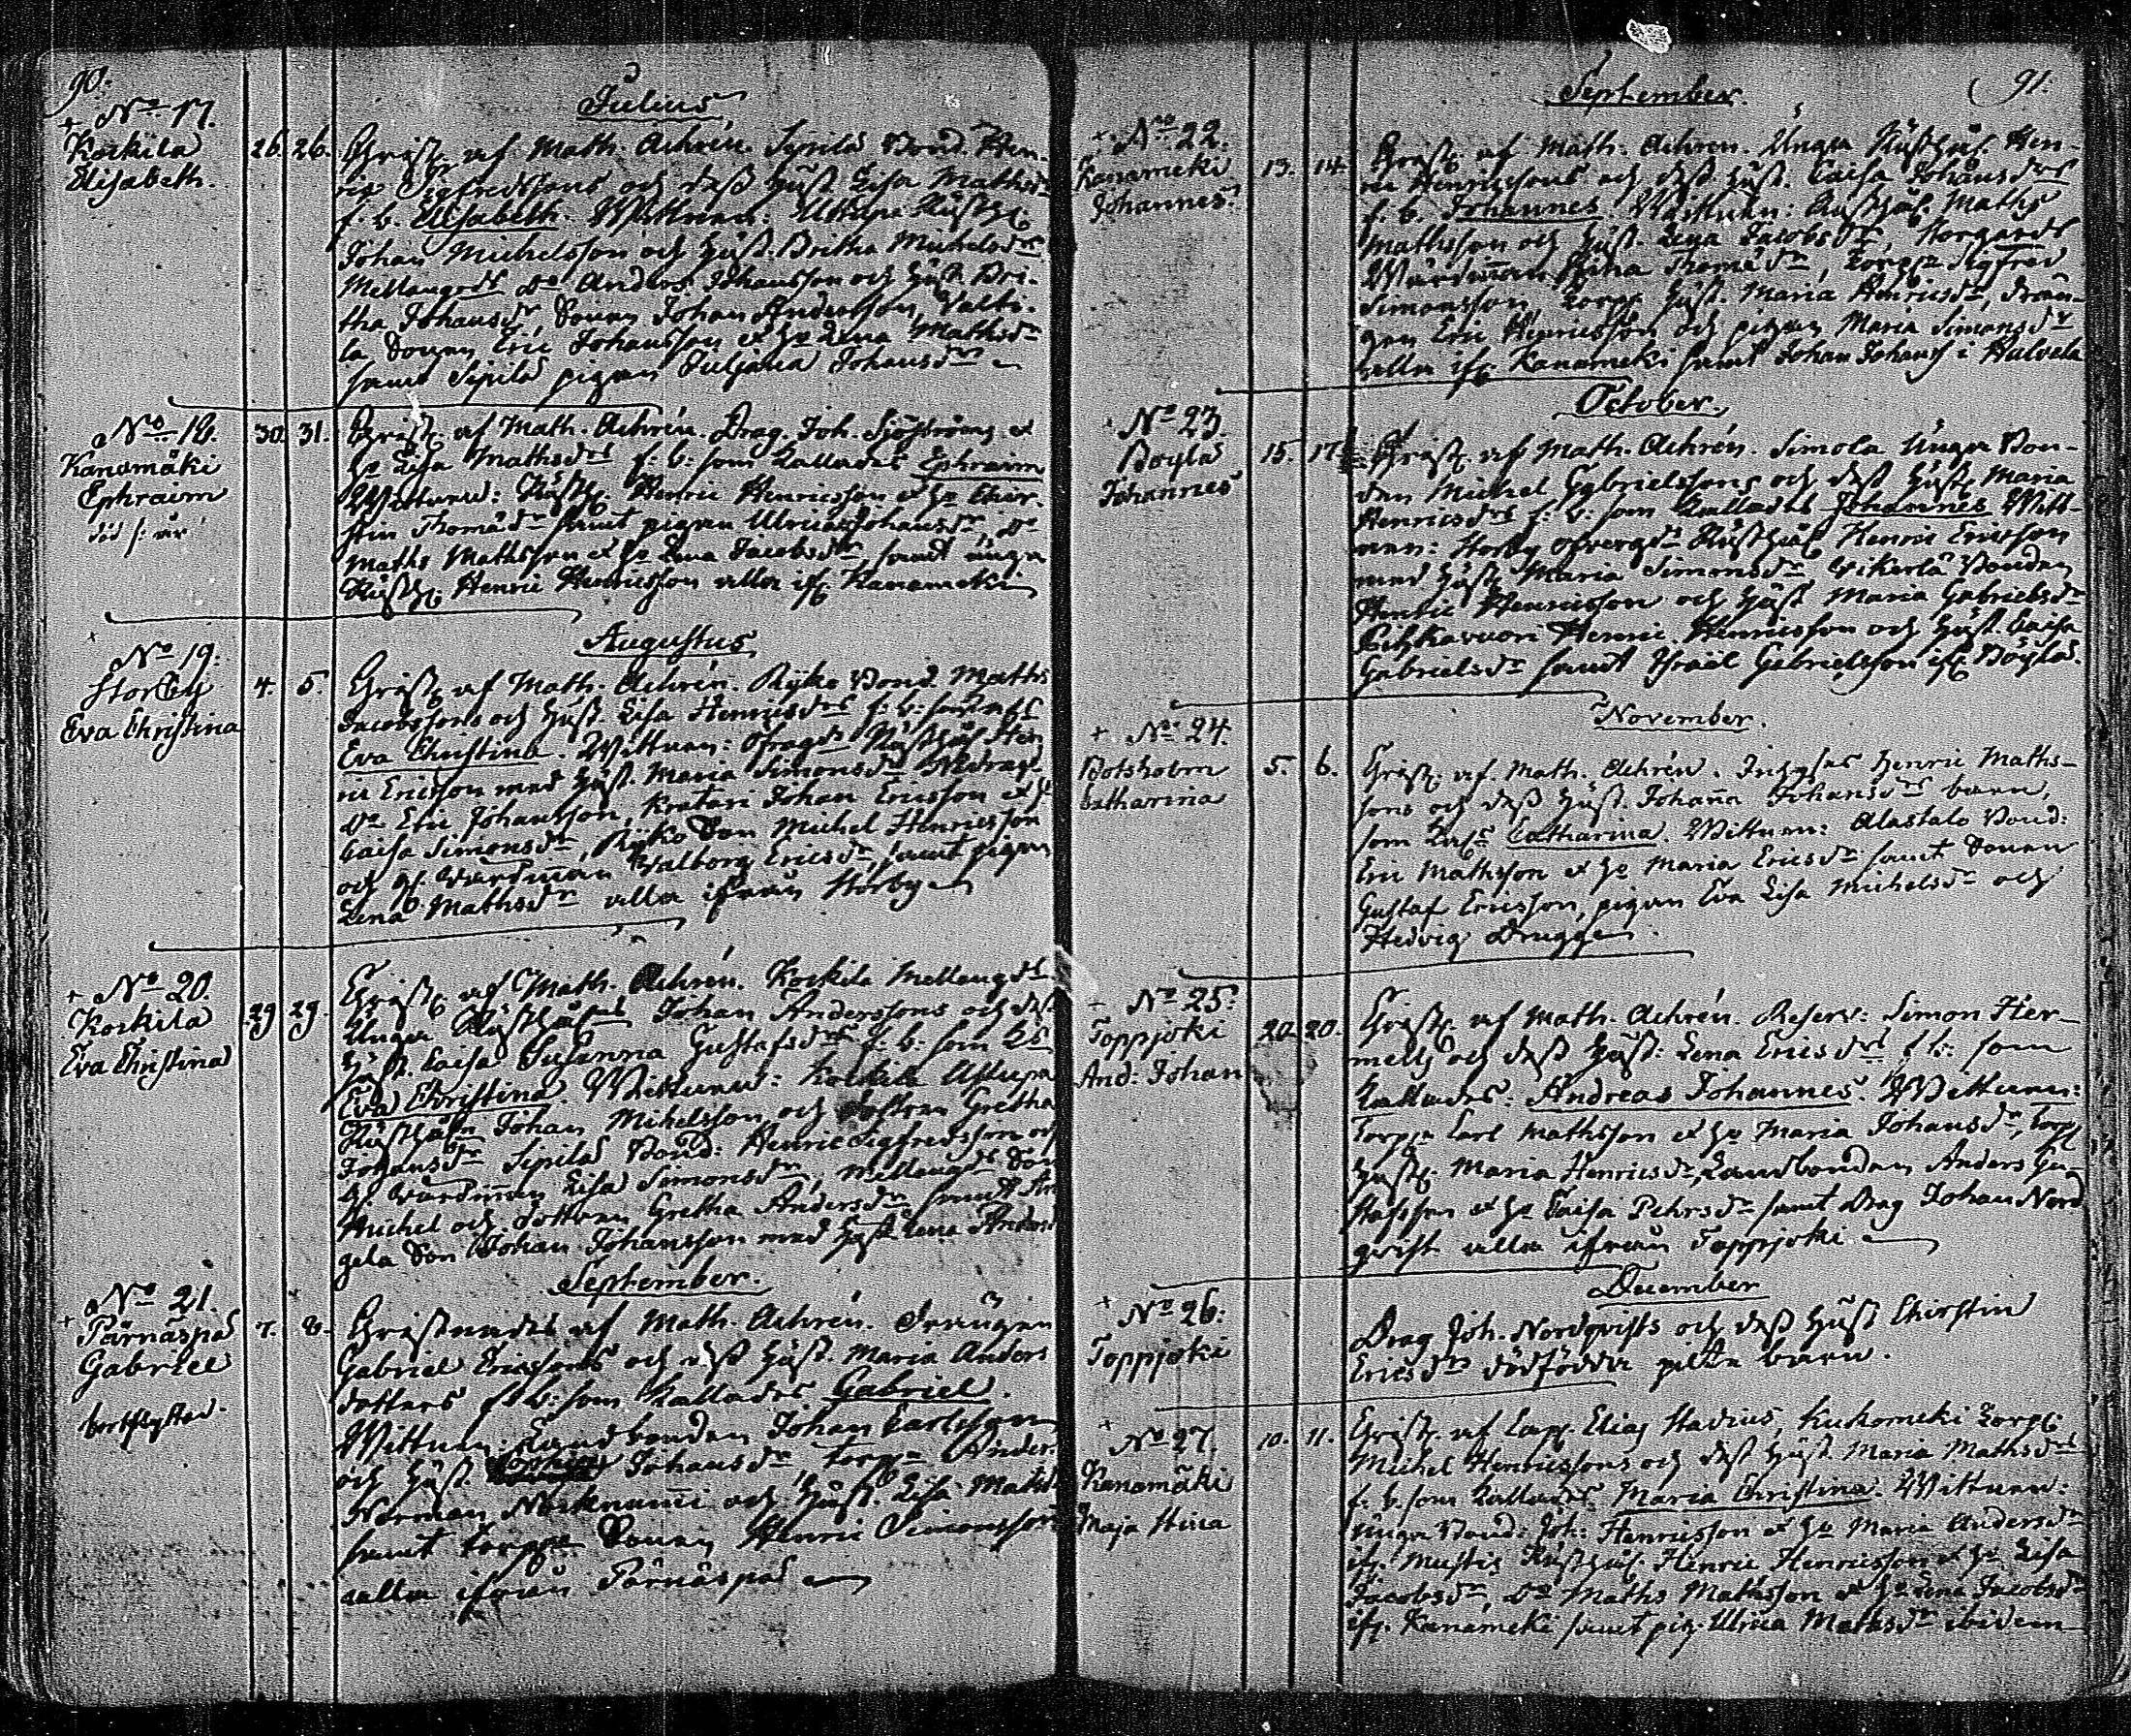 90.
Julius
No 17.
Korkila
Elisabeth.
26. 26.
Christ. af Math. Achrén. Sipilä Bond. Hen-
ric Sigfredssons och dess hust. Lisa Mathsdrs
f. b. Elisabeth. Wittnen: Rusth.
Johan Michelsson och hust. Britha Michelsdr
Mellangds Do Anders Johansson och hust. Bri-
tha Johansdr, Sonen Johan Andersson,
la Sonen Eric Johansson et Ho Lena Mathsdr
samt Sipilä pigan Juljana Johansdr
No 18.
Kanamäki
Ephraim
30. 31.
Christ. af Math. Achrén. Drag. Joh. Sjöströms et
Ho Lisa Mathsdrs f: b: som kallades Ephraim
Wittnen: Rusth. Henric Henricsson et Ho Chir-
stin Thomædr samt pigan Ulrica Johansdr, Do
Maths Mathsson et Ho Lena Jacobsdr samt unga
Rusth. Henric Henricsson alla ifr. Kanameki
Augustus
No 19.
Storby
Eva Christina
4. 5.
Christ. af Math. Achrén. Ryko Bond. Maths
Jacobssons och hust. Lisa Henricsdrs f: b:
Eva Christina. Wittnen: Rusthål. Hen
ric Ericsson med hust. Maria Simonsdr
Do Eric Johansson, Kratari Johan Ericsson et Ho
Caisa Simonsdr, Ryko Son Michel Henricsson
och Walborg Ericsdr, samt pigan
Lena Mathsdr alla ifrån Storby
No 20.
Korkila
Eva Christina
29 29.
Christ. af Math. Achrén. Korkila Mellangds
Unga Rusthål. Johan Anderssons och dess
hust. Caisa Susanna Gustafsdrs f: b: som
Eva Christina. Wittnen: Korkila
Rusthåln Johan Michelsson och dottren Gretha
Johansdr Sipilä Bond: Henric Sigfredsson och
Lisa Simonsdr, Mellangds Son
Michel och dottren Gretha Andersdr samt
gela Son Johan Johansson med hust. Lena
September.
No 21.
Pärnäspä
Gabriel
bortflyttad.
7. 8.
Christnades af Math. Achrén. Drängen
Gabriel Ericssons och dess hust. Maria Anders
dotters f: b: som kallades Gabriel.
Wittnen: Landbonden Johan Carlsson
och hust. Johansdr Torp. Ander.
Norman och hust. Lisa Mathsdr
samt Torp. Sonen Henric Simonsson
alla ifrån Pärnäspä
91.
September.
No 22.
Kanameki
Johannes.
13. 14.
Christ. af Math. Achrén. Unga Rusthål. Hen-
ric Henricssons och dess hust. Caisa Johansdrs
f. b. Johannes. Wittnen: Rusthål. Maths
Mathsson och hust. Lena Jacobsdr,
Stina Thomædr, Torp. Sigfred
Simonsson Torp. hust. Maria Henricsdr, Drän-
gen Eric Henricsson och pigan Maria Simonsdr
alla ifr. Kanameki samt Johan Johanss i Hulvela
October.
No 23.
Böylä
Johannes
15. 17.
Christ. af Math. Achrén. Simola Unga Bon-
den Michel Gabrielssons och dess hust. Maria
Henricsdrs f: b: som kallades Johannes Witt-
nen: Storby Rusthål Henric Ericsson
med hust. Maria Simonsdr Wikerlä Bonden
Henric Henricsson och hust Maria Gabrielsdr
Pitzkavuori Henric Henricsson och hust. Caisa
Gabrielsdr samt Israel Gabrielsson ifr. Böylä.
November.
No 24.
Botsholm
Catharina
5. 6.
Christ. af Math. Achrén. Inhyses Henric Maths-
sons och dess hust. Johanna Johansdrs barn,
som Catharina. Wittnen: Alastalo Bond:
Eric Mathsson et Ho Maria Ericsdr samt Sonen
Gustaf Ericsson, pigan Eva Lisa Michelsdr och
Hedvig Drugge.
No 25:
Toppjoki
And: Johan
20. 20.
Christ. af Math. Achrén. Reserv: Simon Her-
mells och dess hust: Lena Ericsdrs f b: som
kallades: Andreas Johannes. Wittnen:
Torp. Carl Mathsson et Ho Maria Johansdr, Torp.
hust. Maria Henricsdr, Landbonden Anders Gu-
stafsson et Ho Caisa Pehrsdr samt Drag Johan Nord
qvist alla ifrån Toppjoki
December
No 26:
Toppjoki
Drag Joh. Nordqvists och dess hust Chirstin
Ericsdrs dödfödda pilte barn.
No 27.
Kanamäki
Maja Stina
10. 11.
Christ. af Cap. Elias Stadius, Kuhomeki Torp:
Michel Henricssons och dess hust. Maria Mathsdrs
f. b. som kallades Maria Christina. Wittnen:
Unga Bond: Joh: Henricsson et Ho Maria Andersdr
ifr. Mustis Rusthål. Henric Henricsson et Ho Lisa
Jacobsdr, Do Maths Mathsson et Ho Lena Jacobsdr
ifr. Kanameki samt pig. Ulrica Mathsdr ibidem